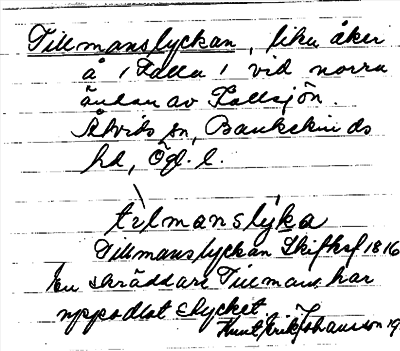 Tillmanslyckan, liku åker
å 1 Falla 1 vid norra
ändan av Fallsjön.
Åtvids sn, Bankekinds
hd, Ögl. l.
tilmanslyka
Tillmanslyckan Skifksf 1816
En skräddare Tillman har
uppodlat stycket
Erik Johansson 19